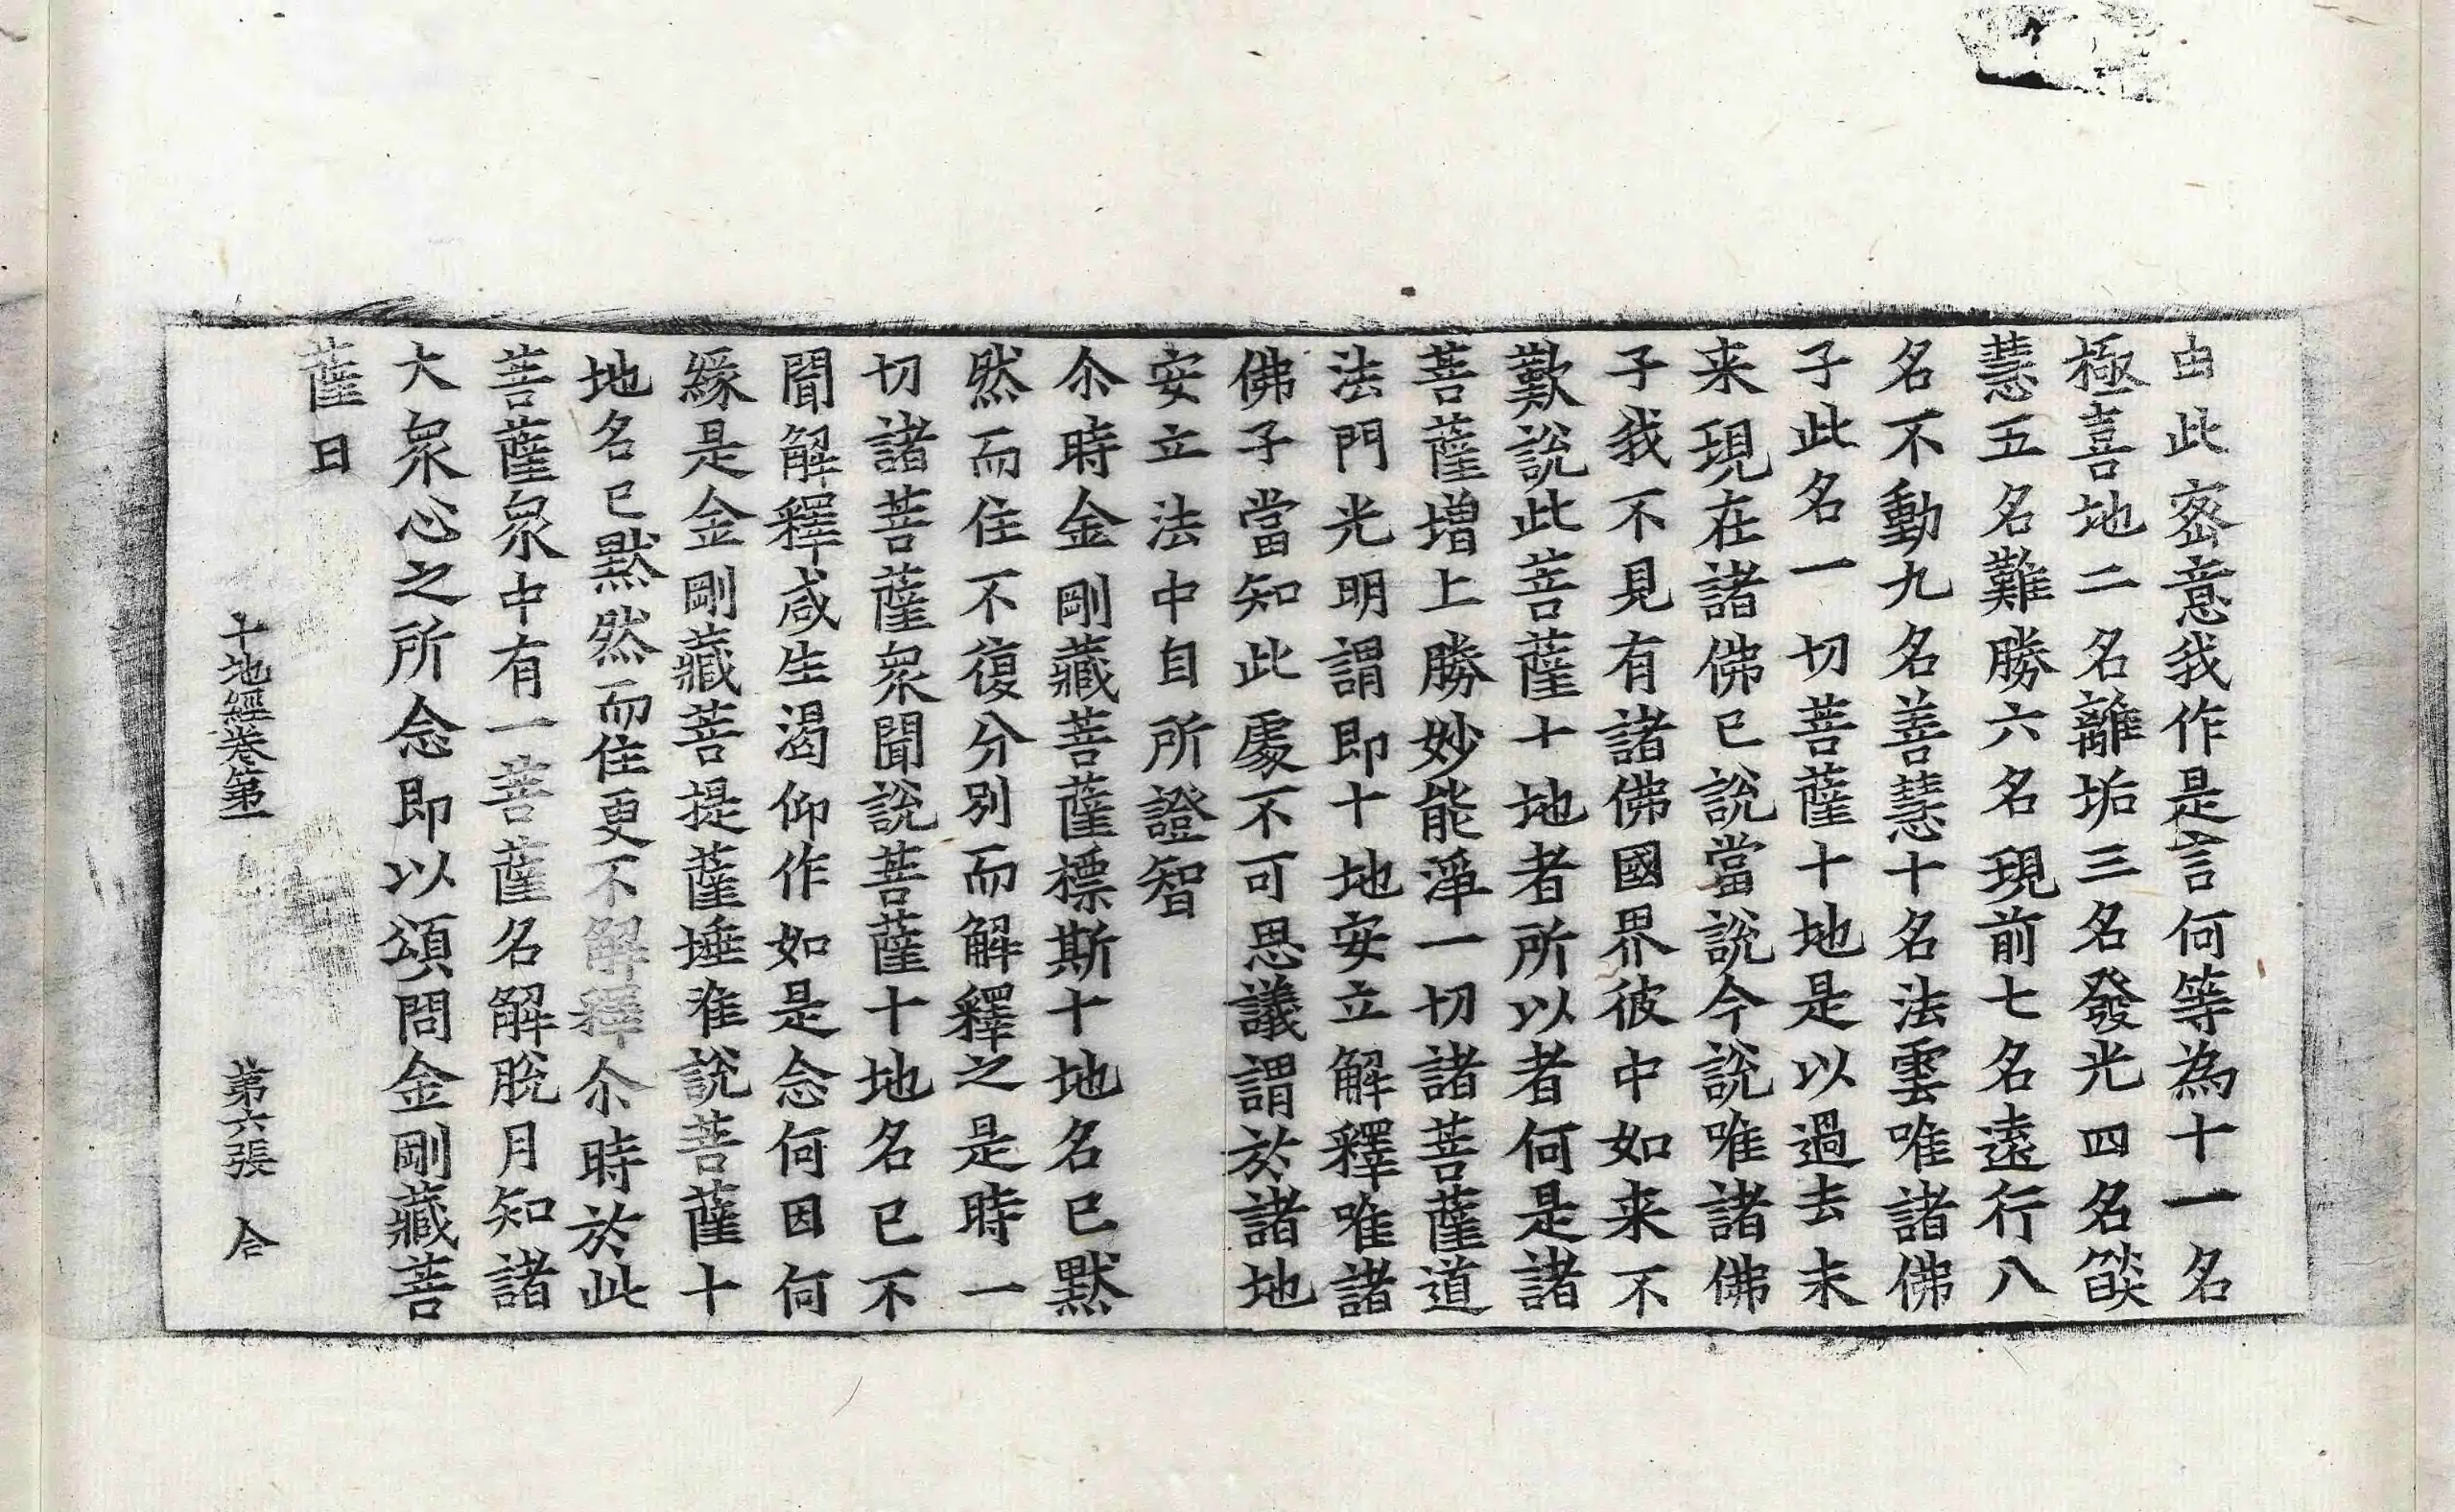 由此密意我作是言何等為十一名
極喜地二名離垢三名發光四名燄
慧五名難勝六名現前七名遠行八
名不動九名善慧十名法雲唯諸佛
子此名一切菩薩十地是以過去未
来現在諸佛已說當說今說唯諸佛
子我不見有諸佛國界彼中如来不
歎說此菩薩十地者所以者何是諸
菩薩增上勝妙能淨一切諸菩薩道
法門光明謂即十地安立解釋唯諸
佛子當知此處不可思議謂於諸地
安立法中自所證智
尒時金剛藏菩薩摽斯十地名已默
然而住不復分別而解釋之是時一
切諸菩薩衆聞說菩薩十地名已不
聞解釋咸生渴仰作如是念何因何
緣是金剛藏菩提薩埵唯說菩薩十
地名已默然而住更不解釋尒時於此
菩薩衆中有一菩薩名解脫月知諸
大衆心之所念即以頌問金剛藏菩
薩曰
十地經卷第一 第六張 合